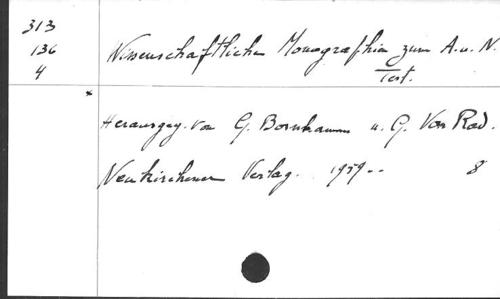 313
136
4
Wissenschaftliche Monographien zum A. u. N.
Test.
*
Herausgeg. von G. Bornkamm u. G. Von Rad.
Neukirchener Verlag. 1959-- 8